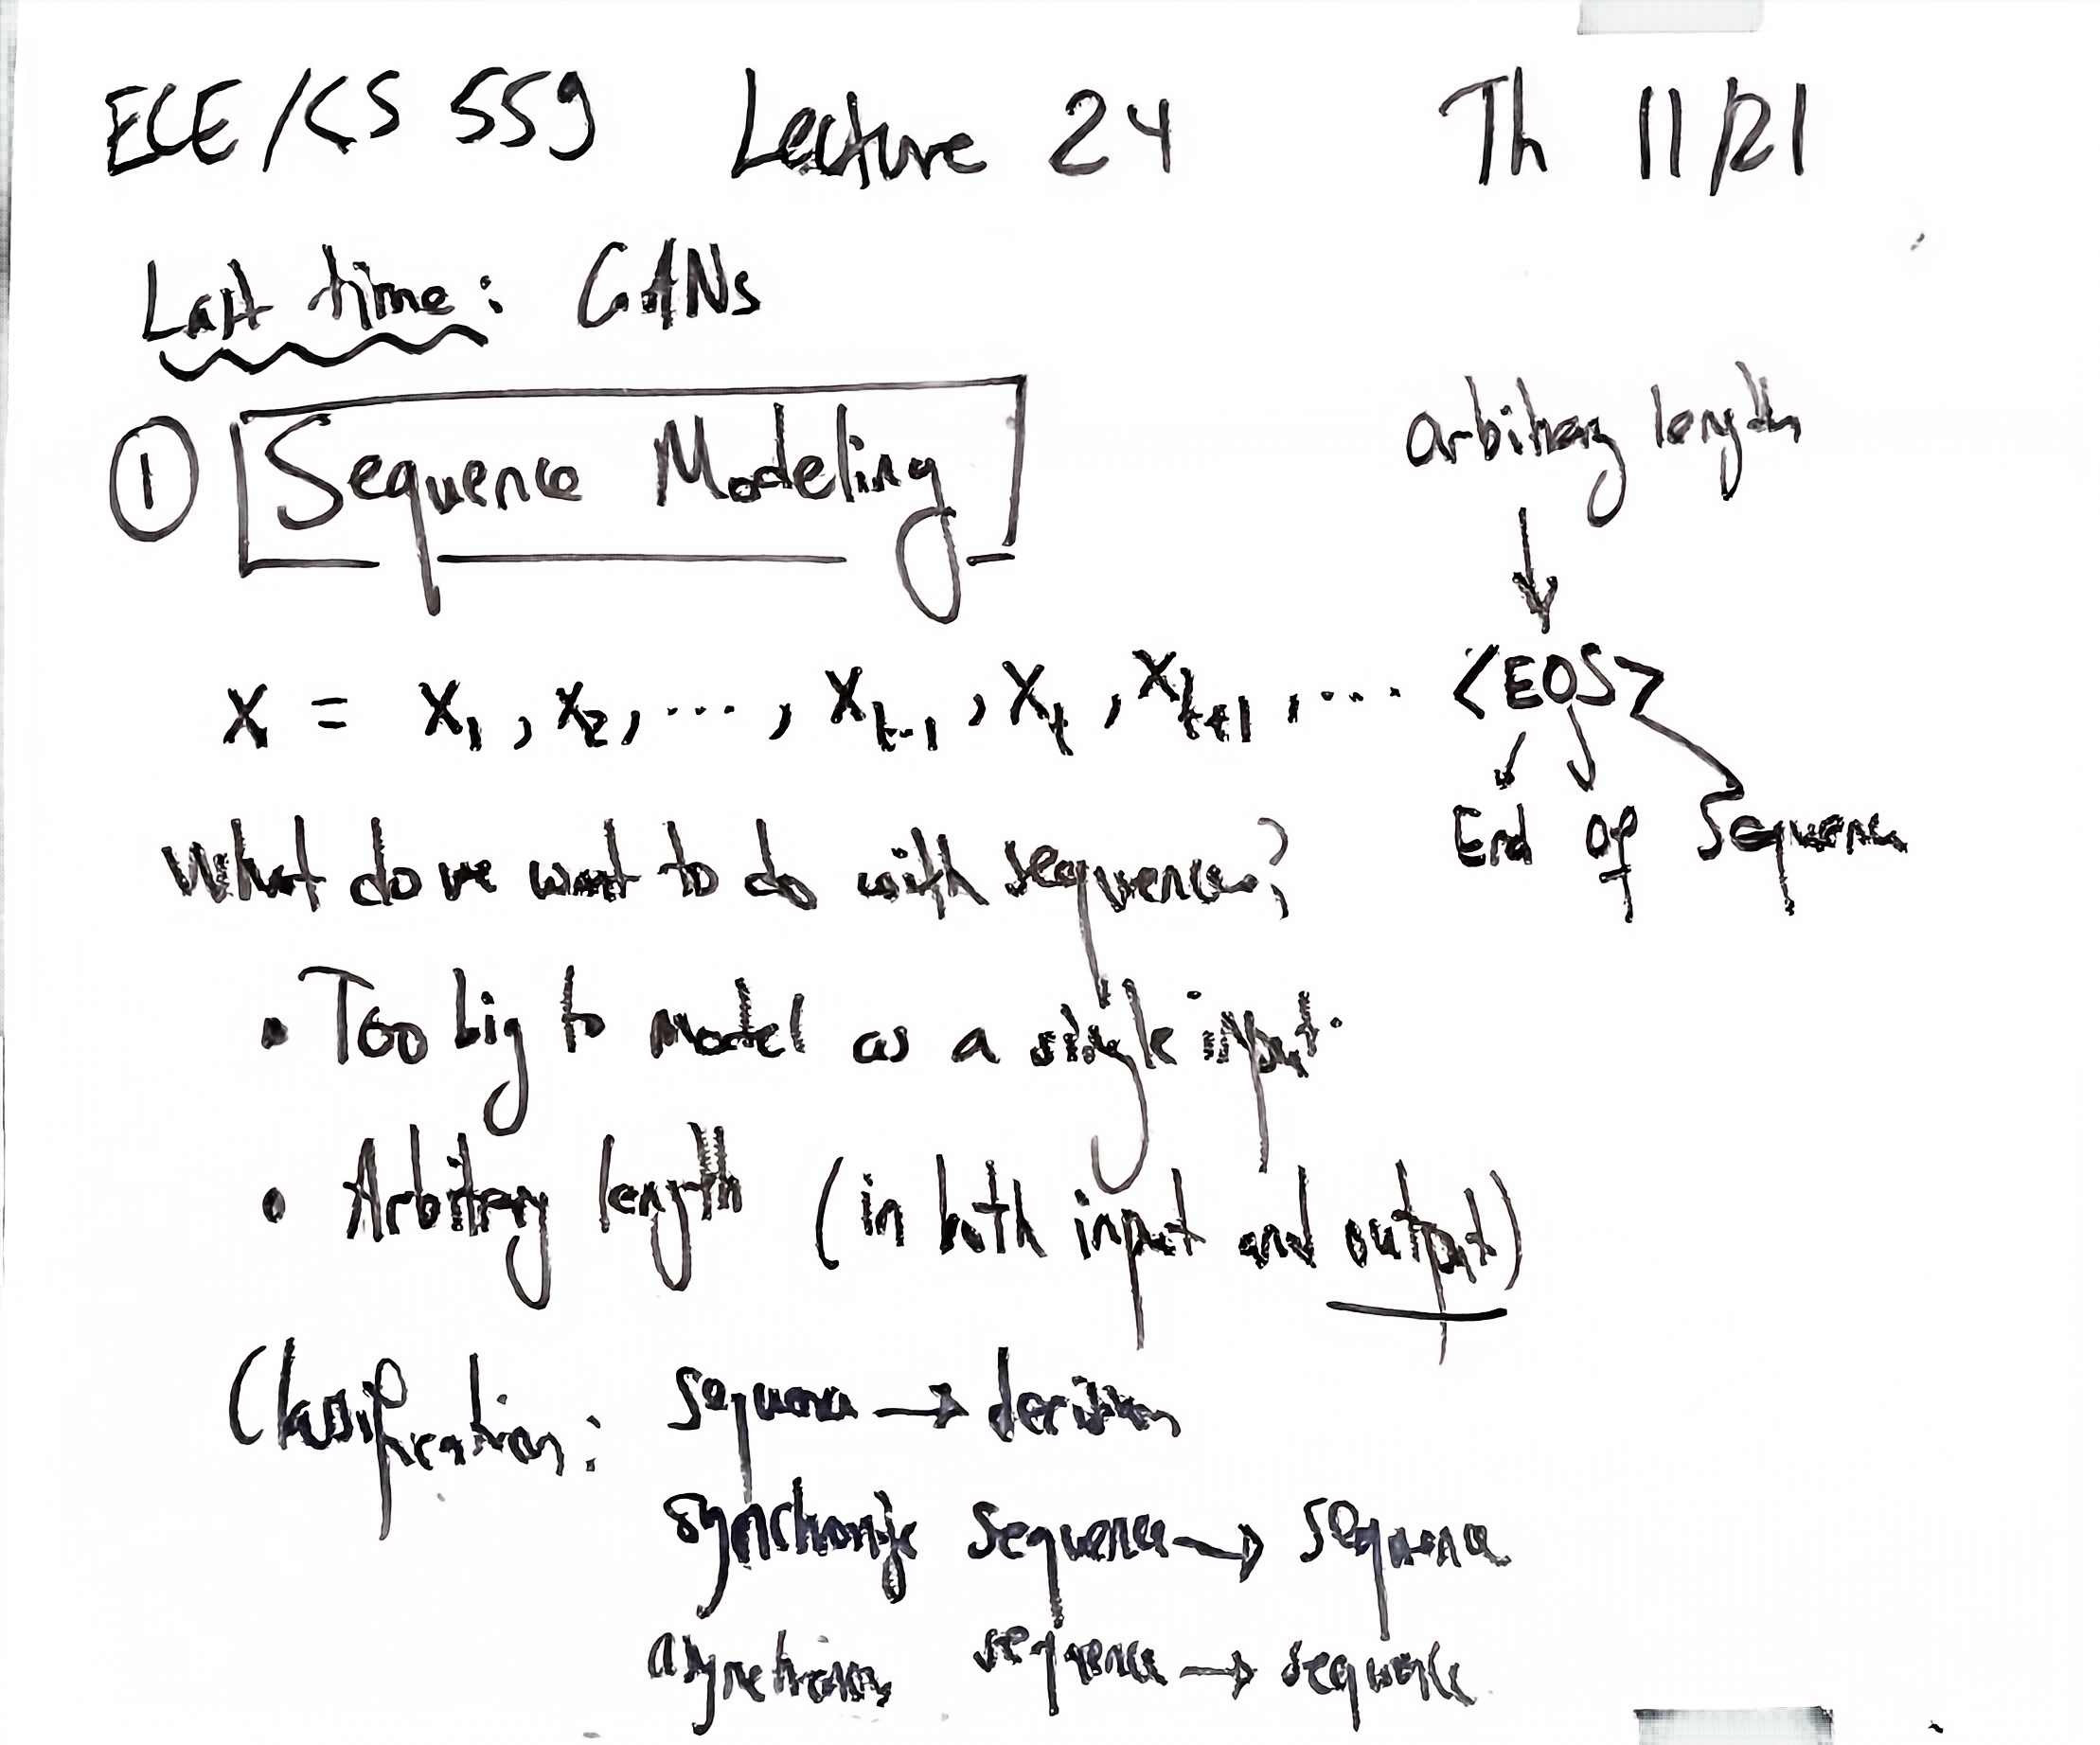 ECE/CS 559 Lecture 24 Th 11/21
Last time: GANs
① Sequence Modeling
arbitrary length
x = x₁, x₂, ..., xₜ₋₁, xₜ, xₜ₊₁, .... <EOS>
End of Sequence
What do we want to do with sequences?
• Too big to model as a single input.
• Arbitrary length (in both input and output)
Classification: sequence → decision
sequence → sequence
sequence → sequence